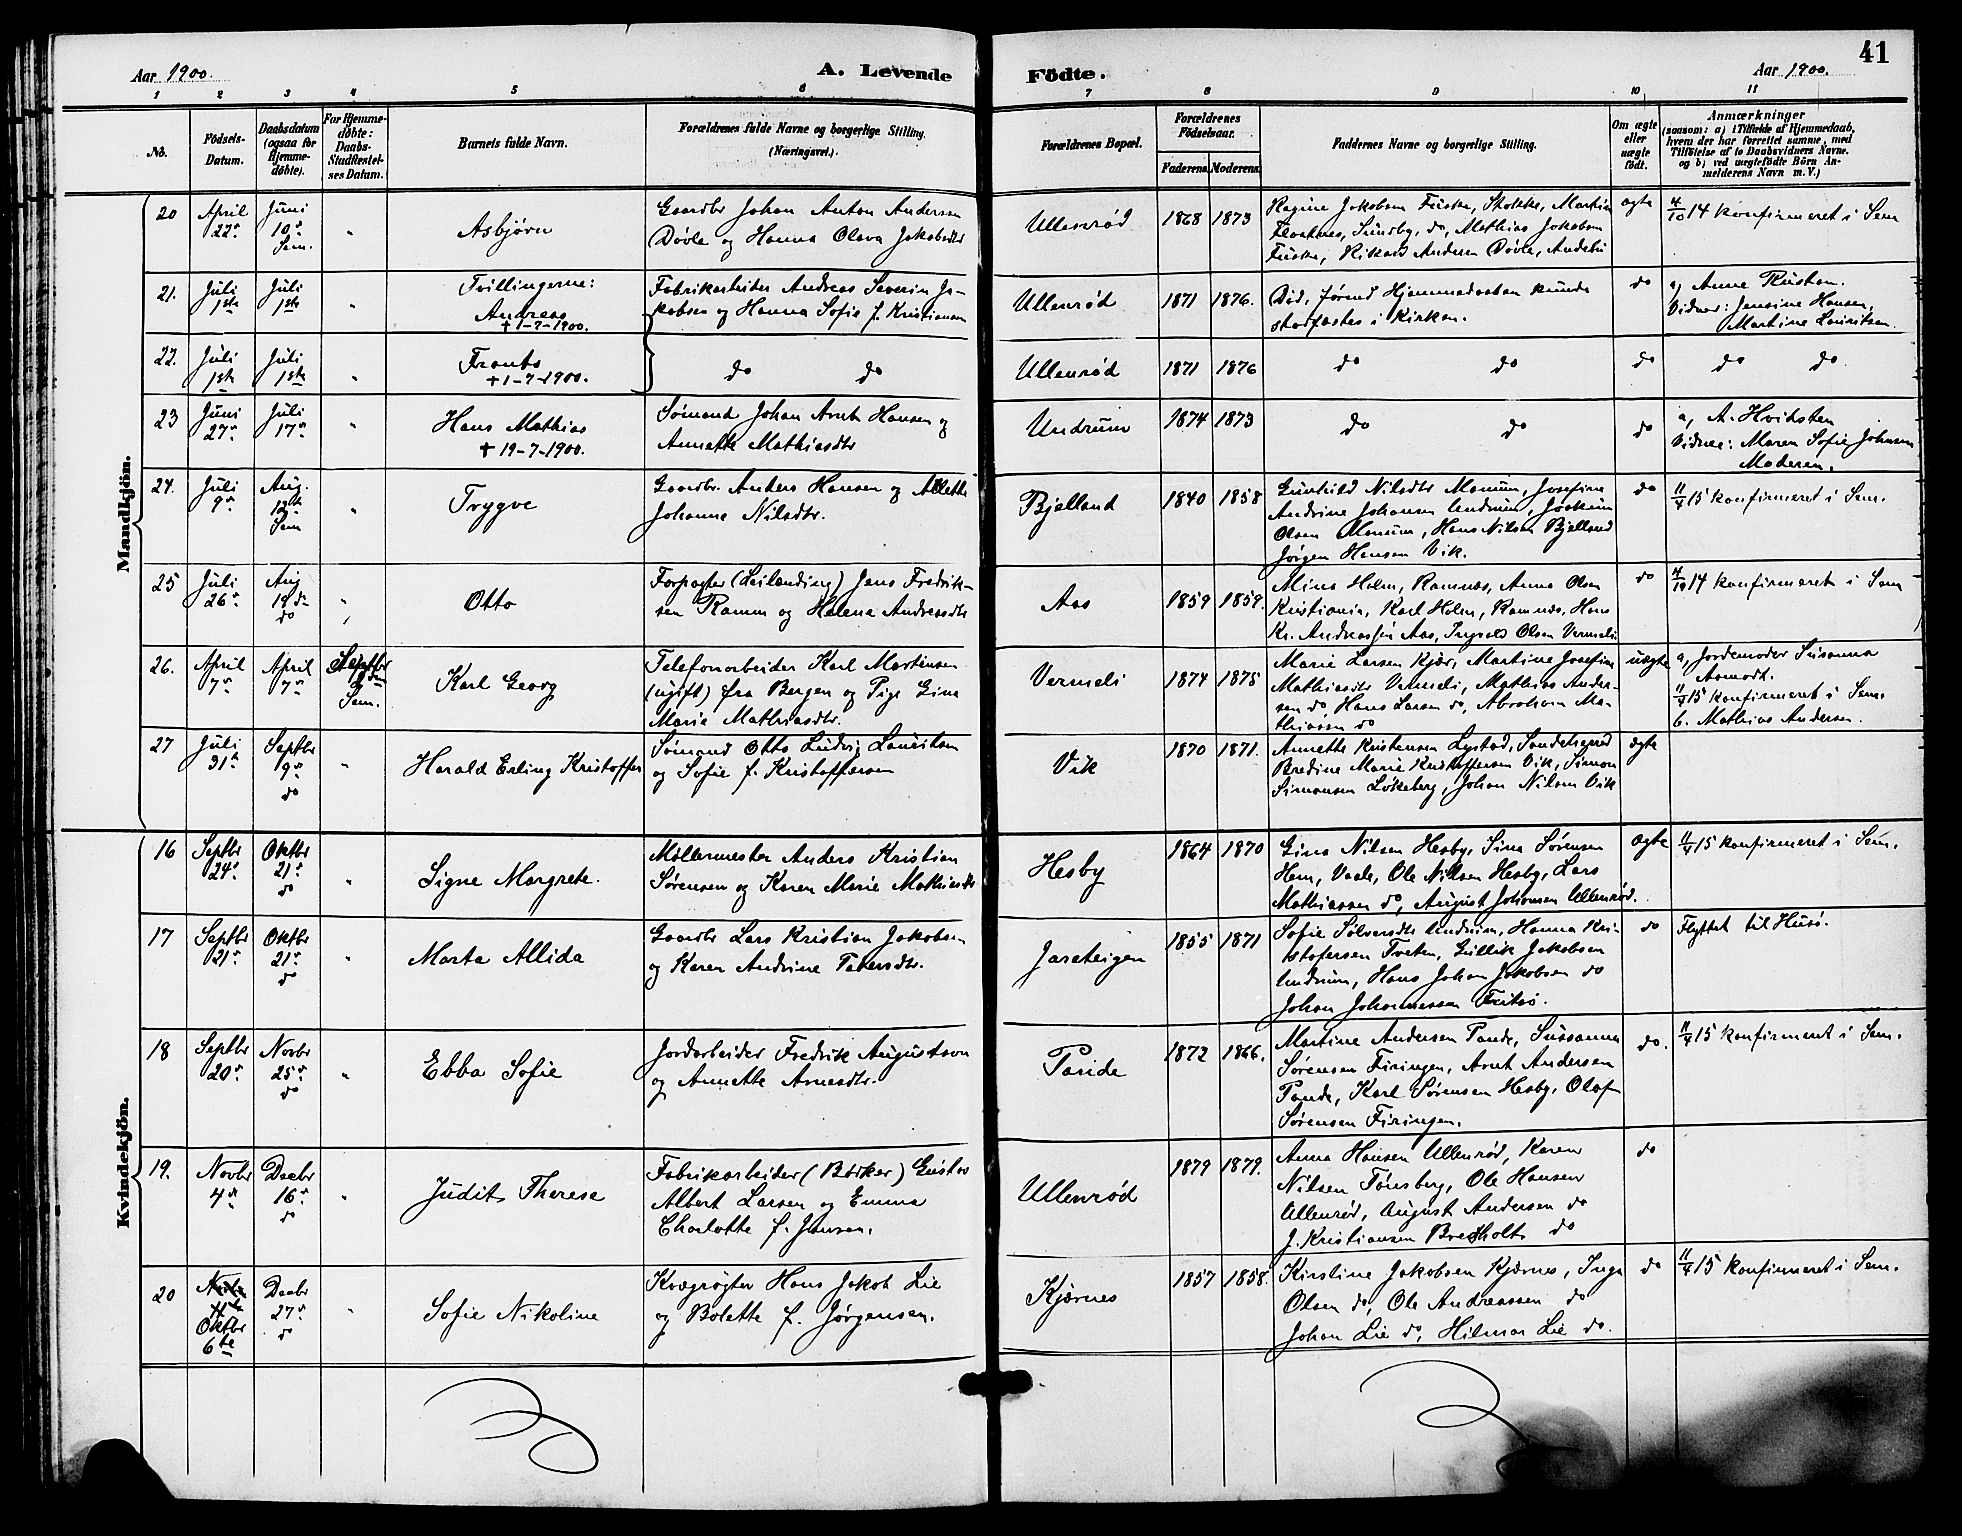 Aar 1900.
A. Levende
Födte.
Aar 1900.
41
1 2 3 4 5 6 7 8 9 10 11
No.
Födsels-Datum.
Daabsdatum (ogsaa for Hjemmedøbte).
For Hjemmedøbte: Daabs-Stadfæstelses Datum.
Barnets fulde Navn.
Forældrenes fulde Navne og borgerlige Stilling. (Næringsvei.)
Forældrenes Bopæl.
Forældrenes Födselsaar.
Faderens. Moderens.
Faddernes Navne og borgerlige Stilling.
Om ægte eller uægte födt.
Anmærkninger
(saasom: a) i Tilfælde af Hjemmedaab, hvem der har forrettet samme, med Tilföielse af to Daabsvidners Navne, og b) ved uægtefödte Börn Anmelderens Navn m. V.)
Mandkjön.
20 April 22de Juni 10de Sem. " Asbjørn
Gaardbr Johan Anton Andersen
Døvle og Hanna Olava Jakobsdtr
Ullenrød 1868 1873
Ragine Jakobsen Fuske, Stokke, Martin
Floatnes, Sundby, do, Mathias Jakobsen
Fuske, Rikard Andersen Døvle, Andebu
ægte
4/10 14 konfirmeret i Sem
21. Juli 1ste Juli 1ste " Tvillingerne:
Andreas
+ 1-7-1900.
Fabrikarbeider Andreas Severin Ja-
kobsen og Hanna Sofie f. Kristiansen
Ullenrød 1871 1876.
Død, førend Hjemmedaaben kunde
stadfæstes i Kirken.
do
a, Anne Rustan.
Vidner: Jensine Hansen,
Martine Lauritsen.
22. Juli 1ste Juli 1ste " Frants
+ 1-7-1900.
do do
Ullenrød 1871 1876
do do do do do
23 Juni 27de Juli 17de " Hans Mathias
+ 19-7-1900.
Sømand Johan Arnt Hansen og
Annette Mathiasdtr
Undrum 1874 1873
do do do
a, A. Hvitsten
Vidner: Maren Sofie Johnsen
Moderen.
24. Juli 9de Aug. 12te Sem " Trygve
Gaardbr. Anders Hansen og Allette
Johanne Nilsdtr.
Bjelland 1840 1858
Gunhild Nilsdtr Manum, Josefine
Andrine Johansen Undrum, Joakim
Olsen Manum, Hans Nilsen Bjelland
Jørgen Hansen Vik.
do
11/4 15 konfirmeret i Sem.
25 Juli 26de Aug 19de do " Otto
Forpagter (Leilending) Jens Fredrik-
sen Ramm og Helena Andreasdtr
Aas 1859 1859.
Mina Holm, Ramnæs, Anna Olsen
Kristiania, Karl Holm, Ramnæs, Hans
Kr. Andreassen Aas, Ingvald Olsen Vermeli
do
4/10 14 konfirmeret i Sem
26. April 7de April 7de Septbr Sem. Karl Georg
Telefonarbeider Karl Martinsen
(ugift) fra Bergen og Pige Gina
Marie Mathiasdtr.
Vermeli 1874 1875
Marie Larsen Kjær, Martine Josefine
Mathiasdtr Vermeli, Mathias Ander-
sen do Hans Larsen do, Abraham Ma-
thiassen do
uægte
a, Jordemoder Susanna
Aamodt.
11/4 15 konfirmeret i Sem.
b. Mathias Andersen.
27 Juli 31te Septbr 9de do " Harald Erling Kristoffer
Sømand Otto Ludvig Lauritsen
og Sofie f. Kristoffersen
Vik 1870 1871.
Annette Kristensen Lystad, Sandeherred
Bredine Marie Kristoffersen Vik, Simon
Simonsen Løkeberg, Johan Nilsen Vik
ægte
Kvindekjön.
16 Septbr 24de Oktbr 21de do " Signe Margrete.
Møllermester Anders Kristian
Sørensen og Karen Marie Mathiasdtr
Hesby 1864 1870
Gina Nilsen Hesby, Sina Sørensen
Hem, Vaale, Ole Nilsen Hesby, Lars
Mathiassen do, August Johansen Ullenrød.
ægte
11/4 15 konfirmeret i Sem.
17 Septbr 21de Oktbr 21de do " Marta Allida
Gaardbr Lars Kristian Jakobsen
og Karen Andrine Petersdtr.
Jarateigen 1855 1871
Sofie Sølvesdtr Undrum, Hanna Kri-
stofersen Træten, Gullik Jakobsen
Undrum, Hans Johan Jakobsen do
Johan Johannessen Fritsø.
do
Flyttet til Husø.
18 Septbr 20de Novbr 25de do " Ebba Sofie
Jordarbeider Fredrik Augustson
og Annette Arnesdtr.
Paride 1872 1866.
Martine Andersen Pande, Sussanna
Sørensen Firingen, Arnt Andersen
Pande, Karl Sørensen Hesby, Olaf
Sørensen Firingen.
do.
11/4 15 konfirmeret i Sem.
19. Novbr 4de Decbr 16de do " Judit Therese
Fabrikarbeider (Bødker) Gustav
Albert Larsen og Emma
Charlotte f. Jensen.
Ullenrød 1879 1879.
Anna Hansen Ullenrød, Karen
Nilsen Tønsberg, Ole Hansen
Ullenrød, August Andersen do
J. Kristiansen Bredholt do
do
20 Oktbr 6te Decbr 27de do " Sofie Nikoline
Kvægrøgter Hans Jakob Lie
og Bolette f. Jørgensen.
Kjærnes 1857 1858.
Kirstine Jakobsen Kjærnes, Inga
Olsen do, Ole Andreassen do
Johan Lie do, Hilmar Lie do.
do
11/4 15 konfirmeret i Sem.